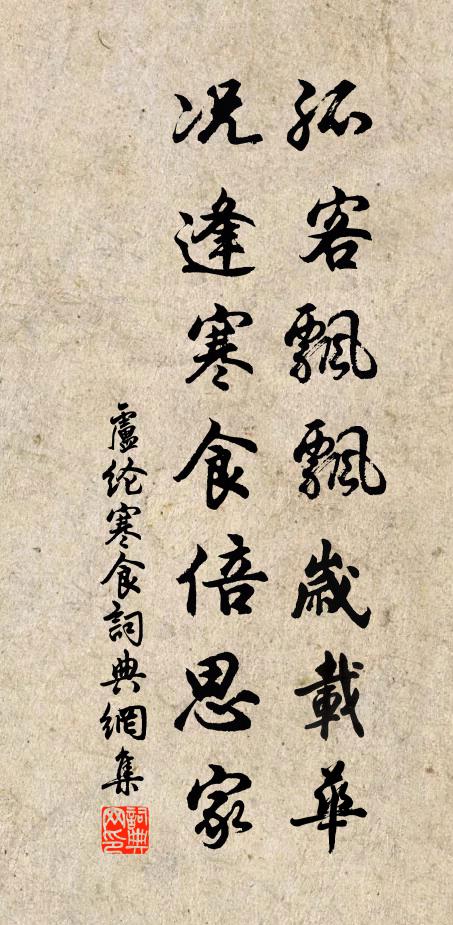 孤客飄飄歲載華
况逢寒食倍思家
盧纶寒食詞典網集
詞典網印